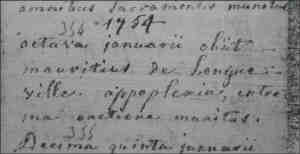 omnibus sacramentis munitus
354 1754
octava januarii obiit
mauritius de Longue-
ville appoplexia, extre
ma unctione munitus.
355
Decima quinta januarii